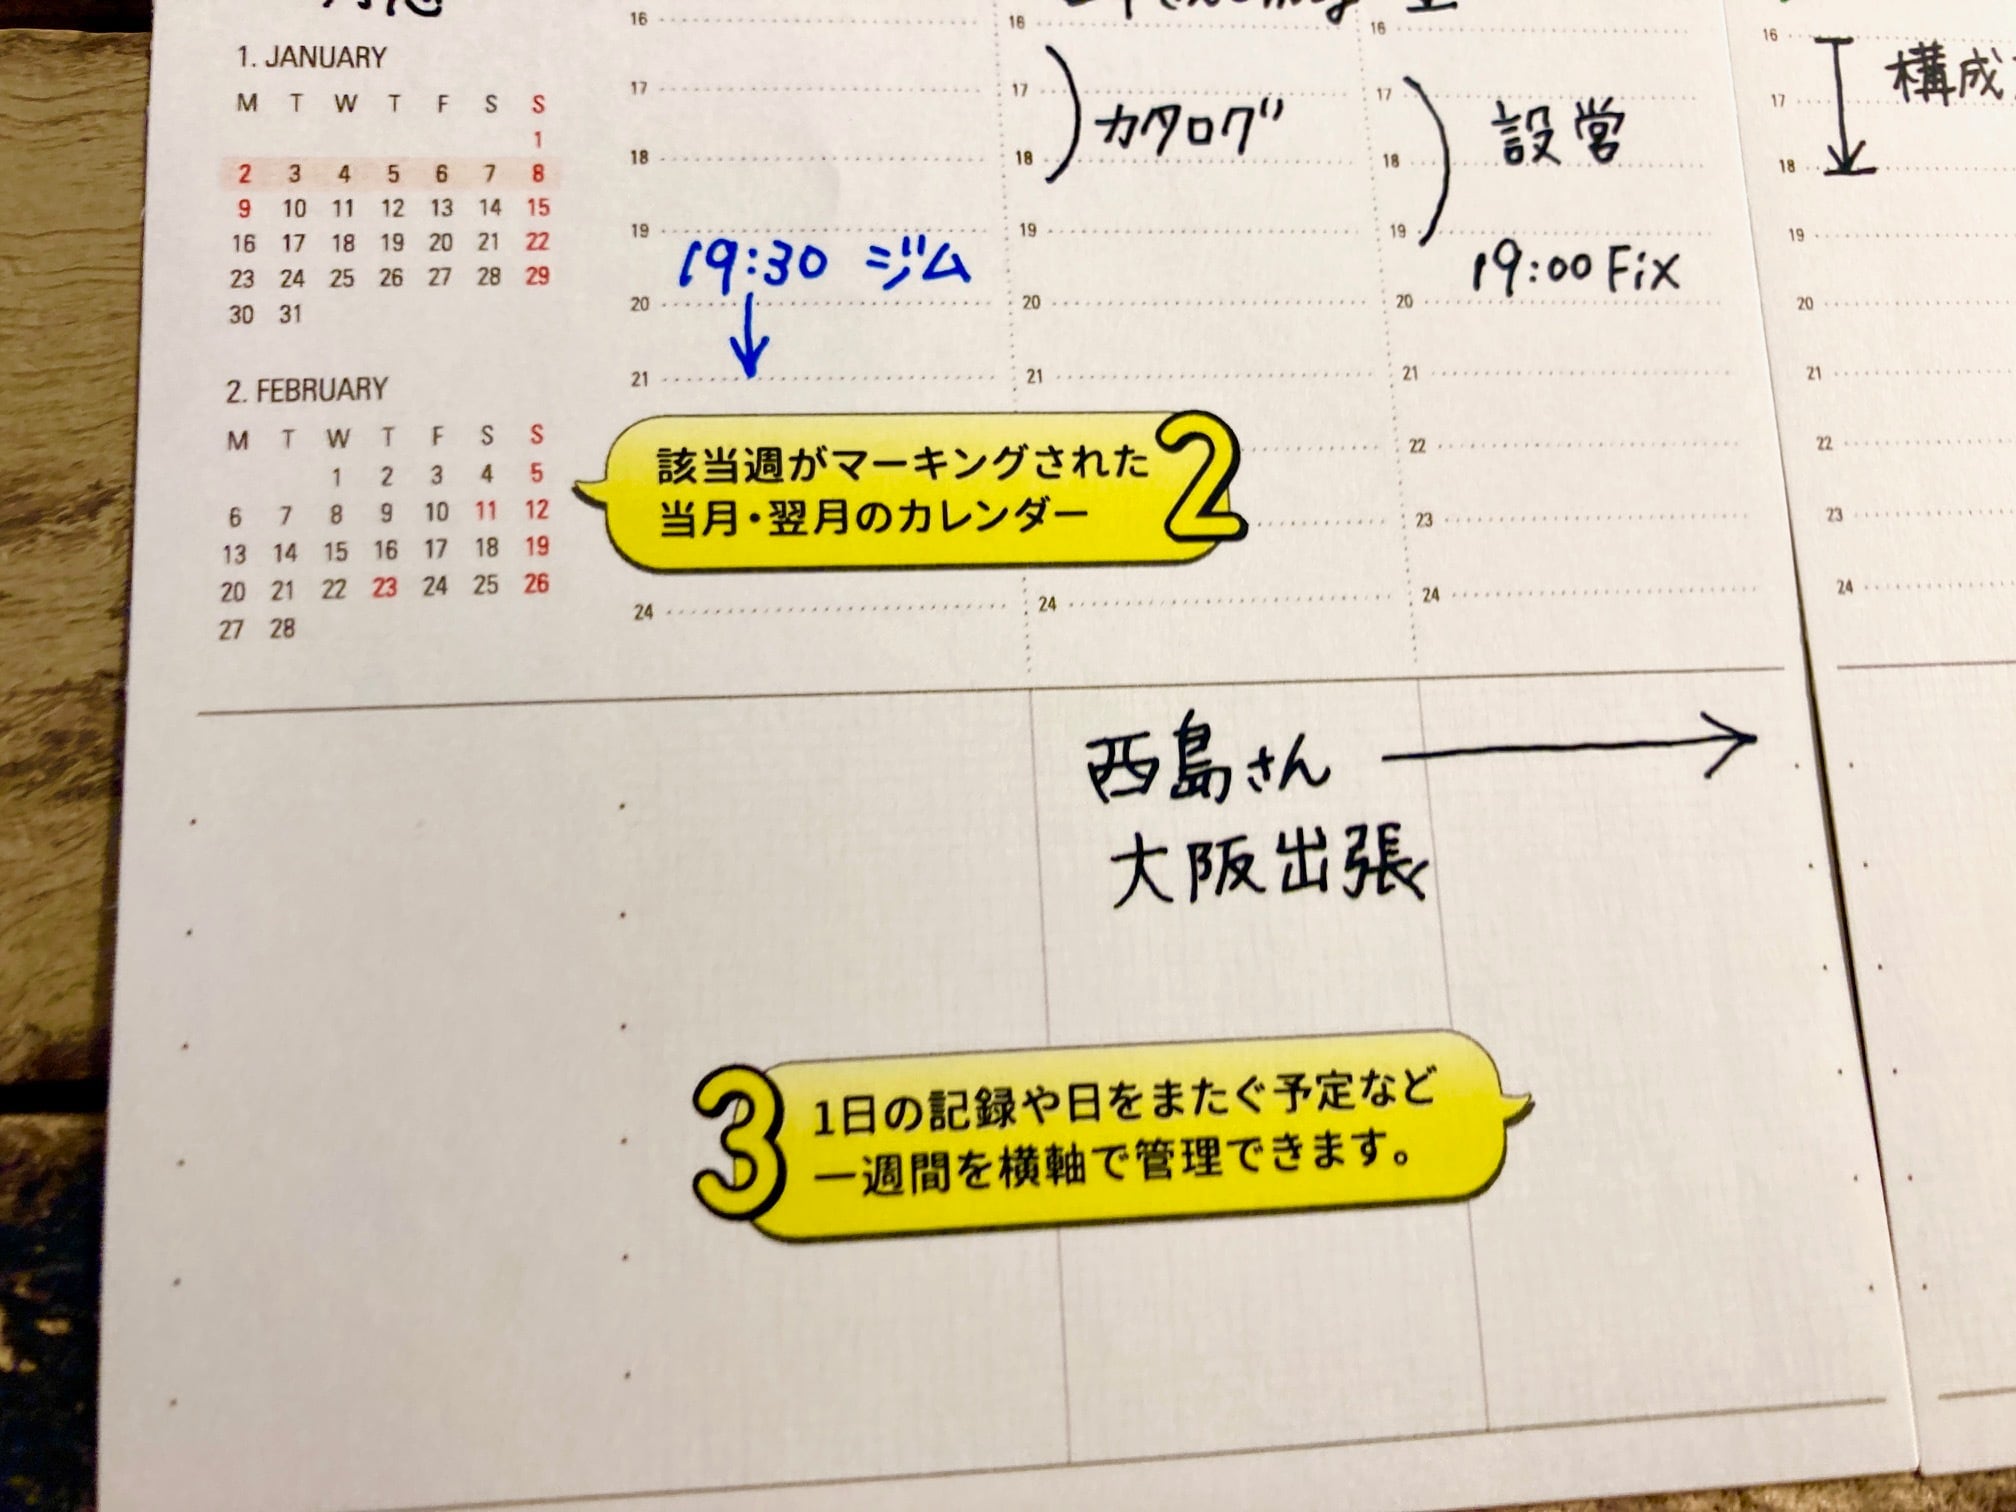 1. JANUARY
M T W T F S S
1
2 3 4 5 6 7 8
9 10 11 12 13 14 15
16 17 18 19 20 21 22
23 24 25 26 27 28 29
30 31
2. FEBRUARY
M T W T F S S
1 2 3 4 5
6 7 8 9 10 11 12
13 14 15 16 17 18 19
20 21 22 23 24 25 26
27 28
16
17
18
19
19:30 ジム
20
21
24
16
17
カタログ
18
19
20
21
24
16
17
設営
18
19
19:00 Fix
20
21
22
23
24
16
構成
17
18
19
20
21
22
23
24
該当週がマーキングされた
当月・翌月のカレンダー
2
西島さん
大阪出張
3
1日の記録や日をまたぐ予定など
一週間を横軸で管理できます。